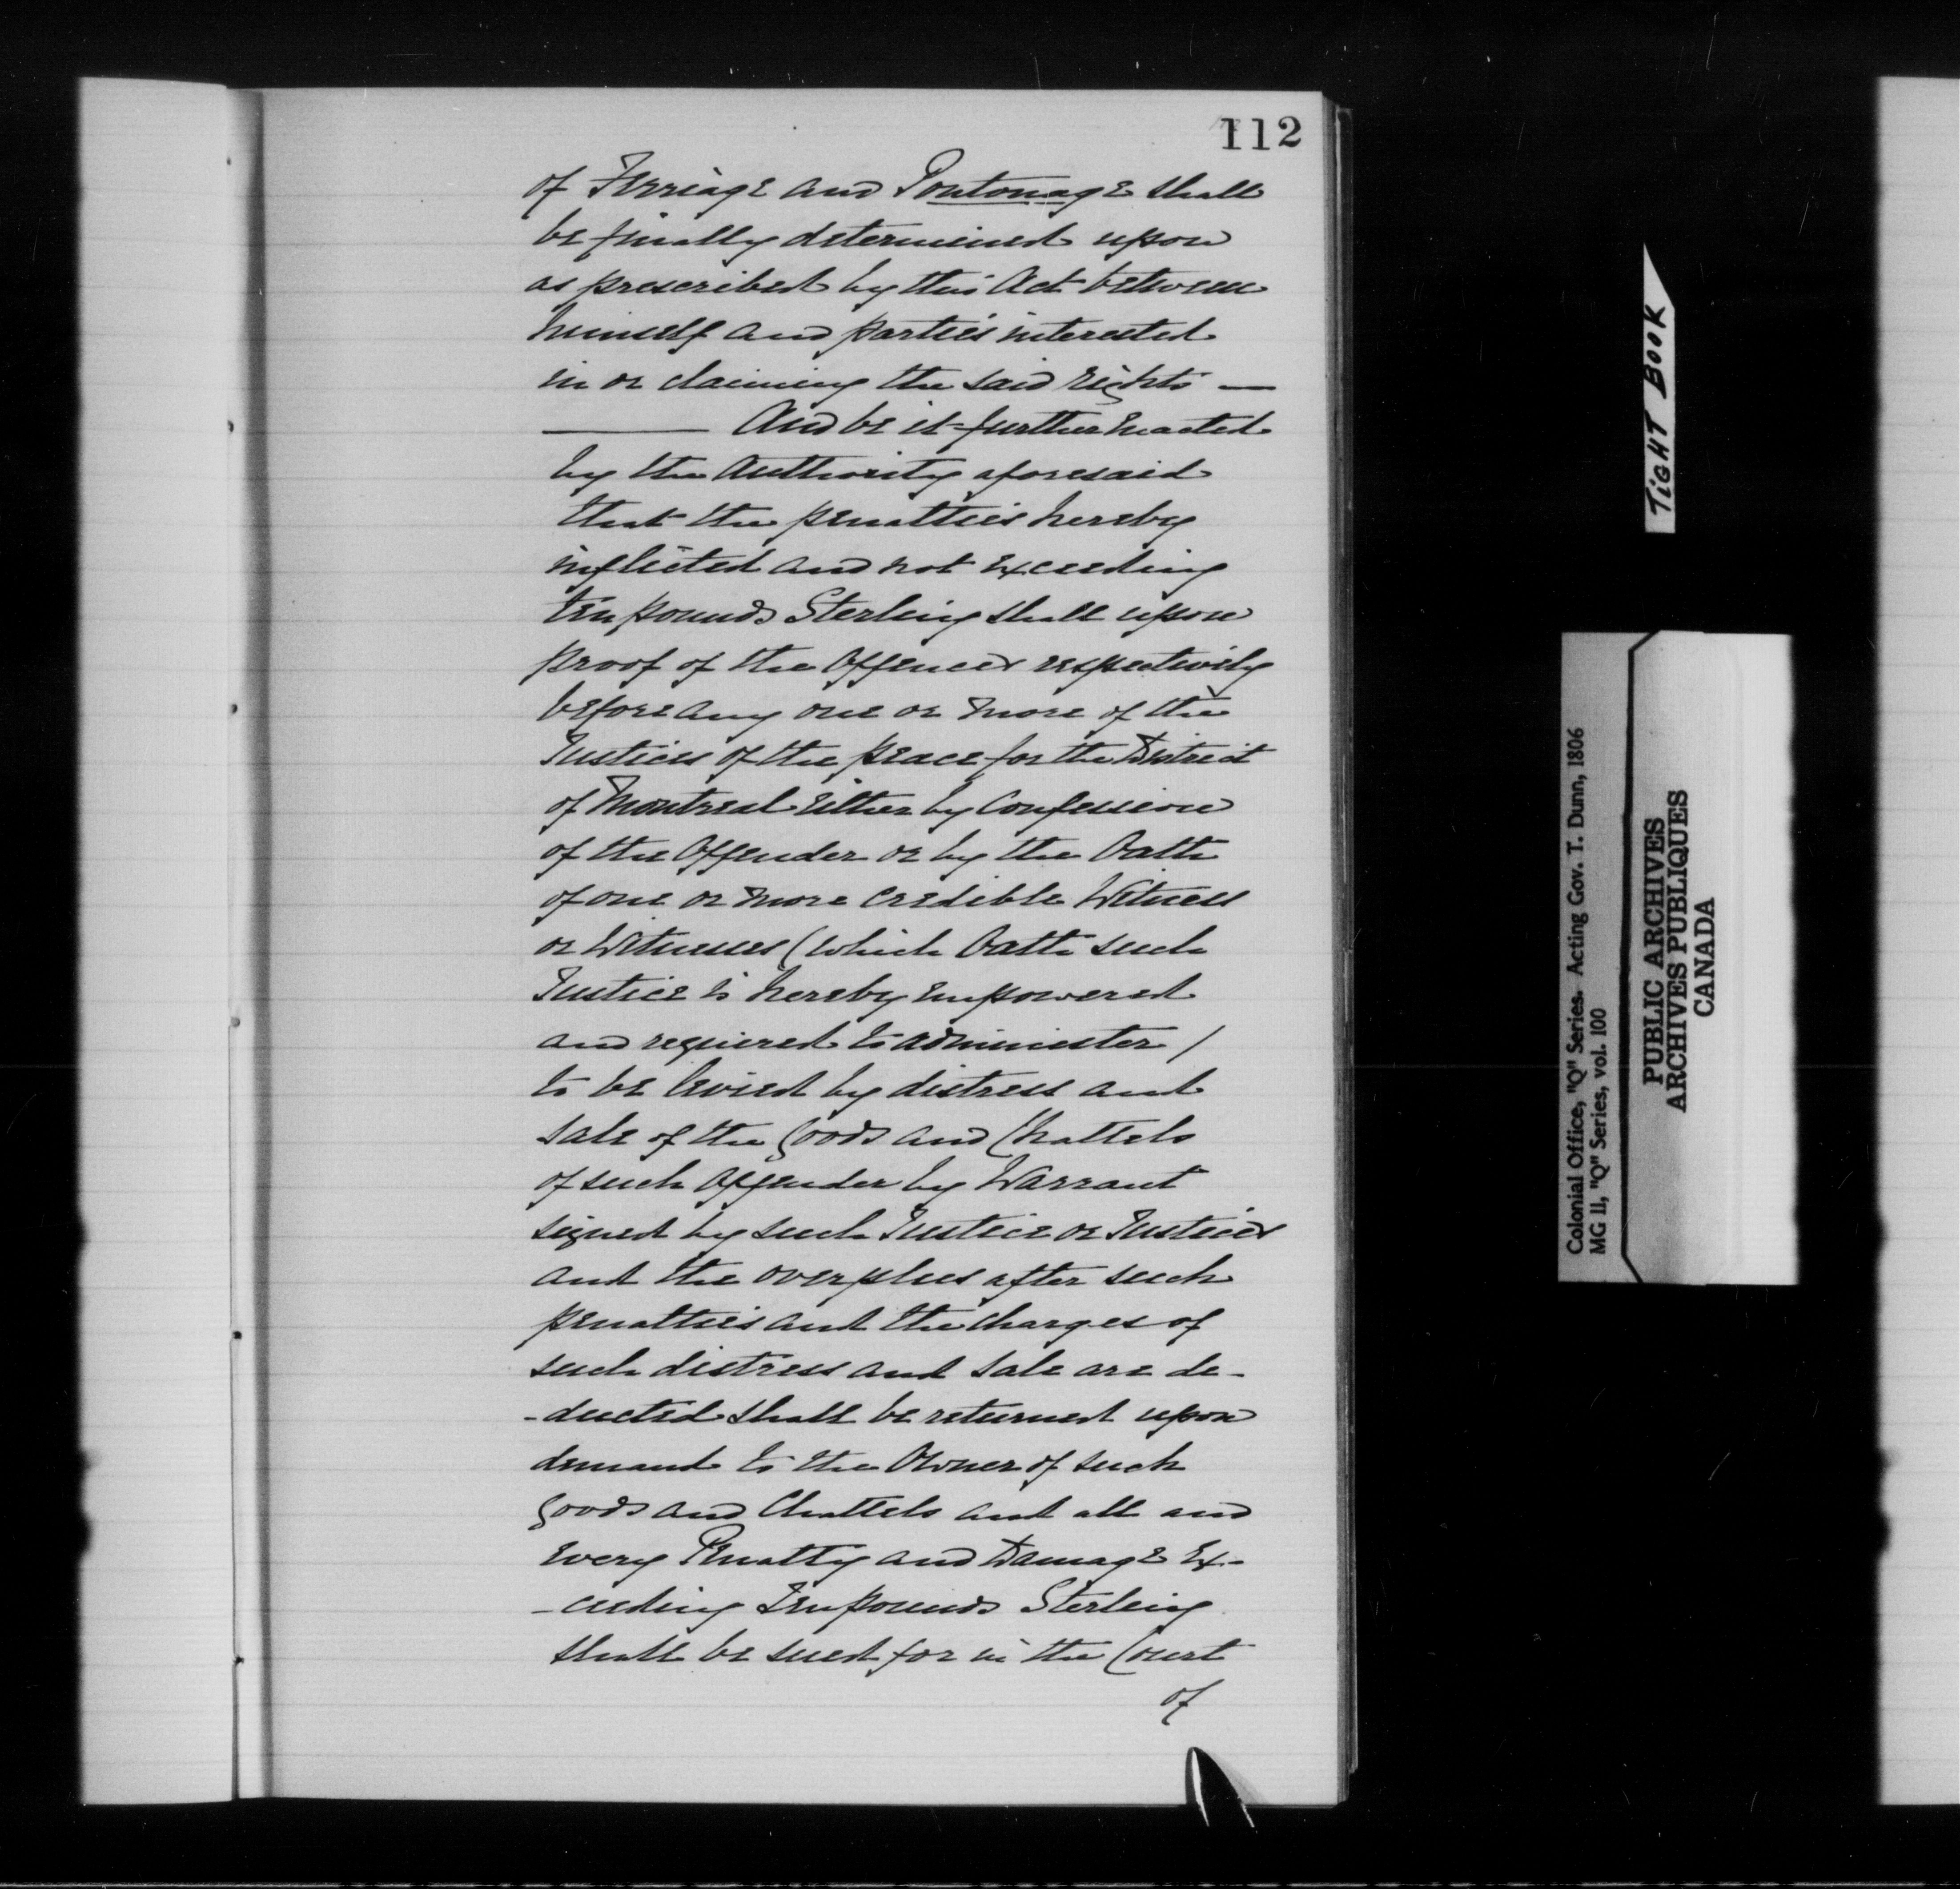 112
of Ferriage and Pontonage shall
be finally determined upon
as prescribed by this Act between
himself and parties interested
in or claiming the said rights —
— And be it further Enacted
by the Authority aforesaid
that the penalties hereby
inflicted and not Exceeding
ten pounds Sterling shall upon
proof of the Offences respectively
before any one or more of the
Justices of the peace for the District
of Montreal Either by Confession
of the Offender or by the Oath
of one or more Credible Witness
or Witnesses (which Oath such
Justice is hereby Empowered
and required to administer)
to be levied by distress and
sale of the Goods and Chattels
of such Offender by Warrant
signed by such Justice or Justices
and the overplus after such
penalties and the charges of
such distress and sale are de-
-ducted shall be returned upon
demand to the Owner of such
Goods and Chattels and all and
Every Penalty and Damage Ex-
-ceeding Ten pounds Sterling
shall be sued for in the Court
of
TIGHT BOOK
Colonial Office, "Q" Series. Acting Gov. T. Dunn, 1806
MG 11, "Q" Series, vol. 100
PUBLIC ARCHIVES
ARCHIVES PUBLIQUES
CANADA